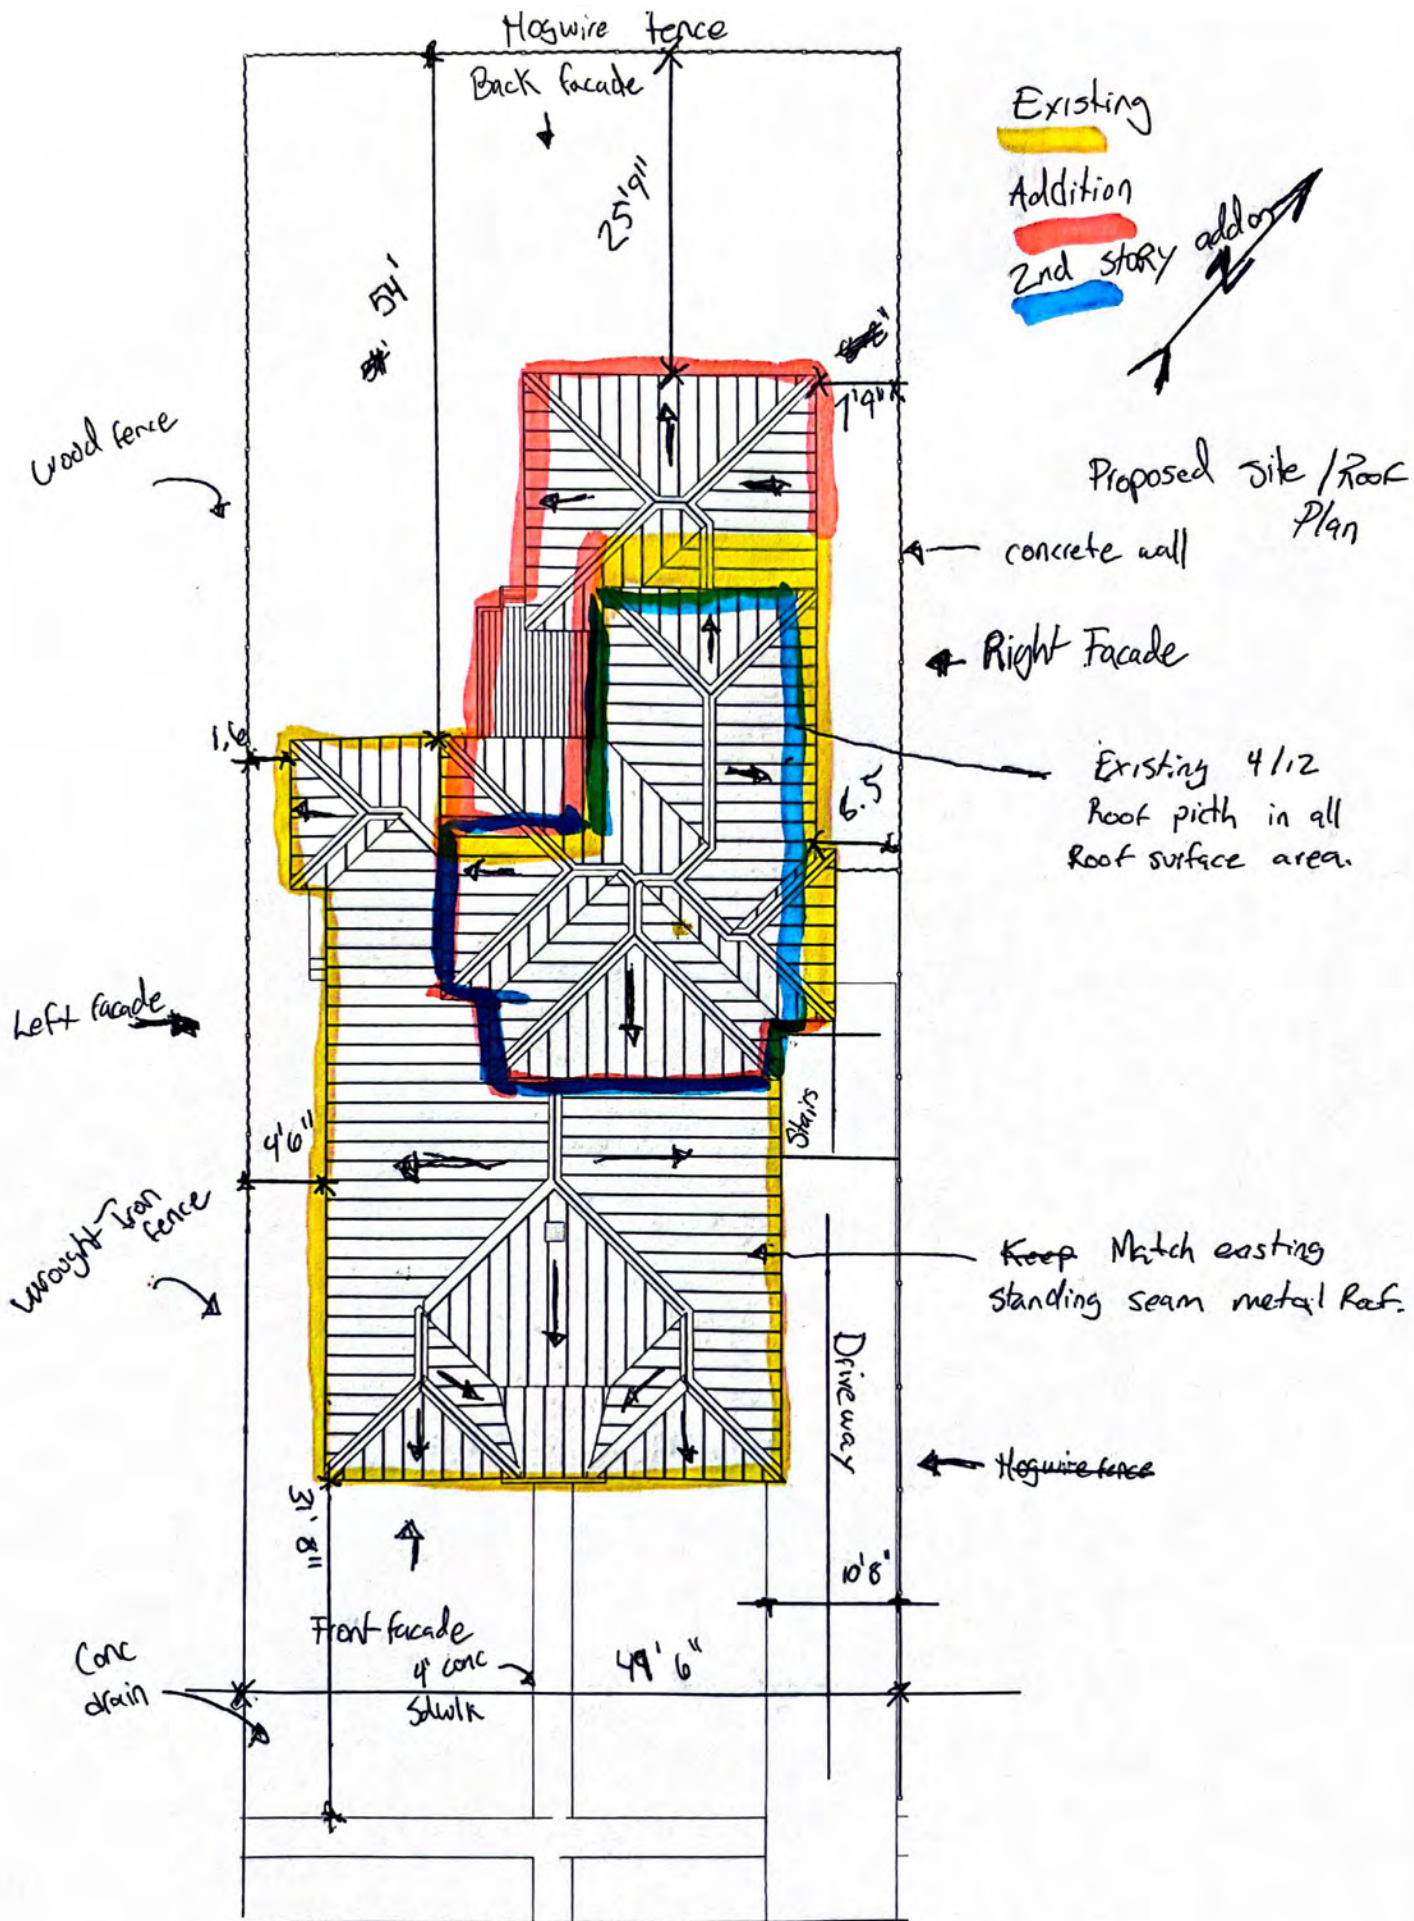 Hogwire fence
Back facade
25'9"
54'
Existing
Addition
2nd story add on
N
7'9"
wood fence
Proposed Site / Roof
Plan
concrete wall
Right Facade
1,6
6.5
Existing 4/12
Roof picth in all
Roof surface area.
Left facade
Stairs
4'6"
wrought-Iron
fence
Keep Match existing
standing seam metal Roof.
Driveway
Hogwire fence
31'8"
10'8"
Front facade
4' conc
Sdwlk
49'6"
Conc
drain